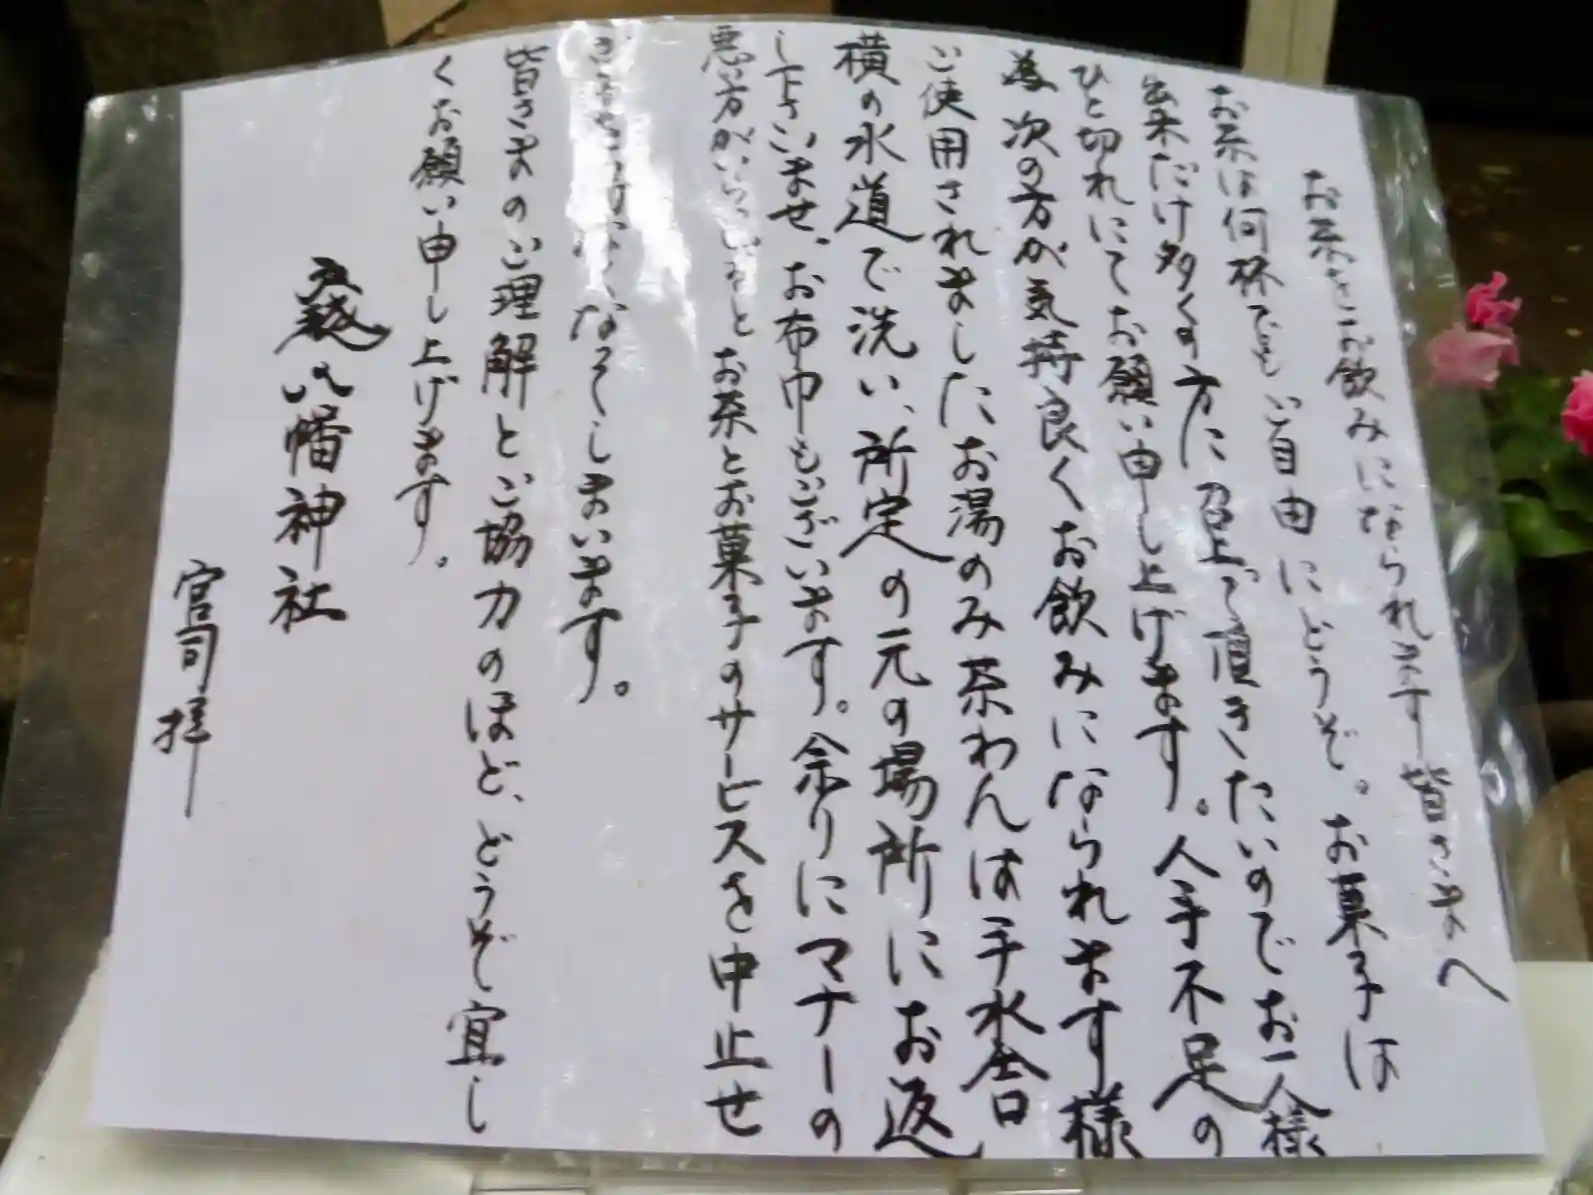 お茶をお飲みになられます皆さまへ
お茶は何杯でもご自由にどうぞ。お菓子は
出来だけ多くの方に召上って頂きたいのでお一人様
ひと切れにてお願い申し上げます。人手不足の
為次の方が気持良くお飲みになられます様
ご使用されましたお湯のみ茶わんは手水舎
横の水道で洗い、所定の元の場所にお返
し下さいませ、お布巾もございます。余りにマナーの
悪い方がいらっしゃるとお茶とお菓子のサービスを中止せ
なくてしまいます。
皆さまのご理解とご協力のほど、どうぞ宜し
くお願い申し上げます。
八幡神社
宮司拝